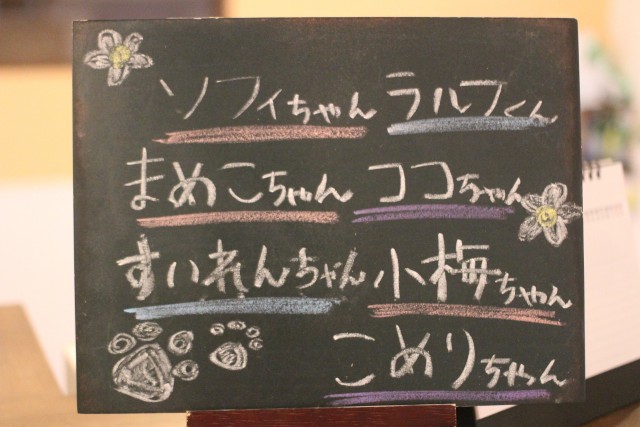 ソフィちゃん ラルフくん
まめこちゃん ココちゃん
すいれんちゃん 小梅ちゃん
こめりちゃん